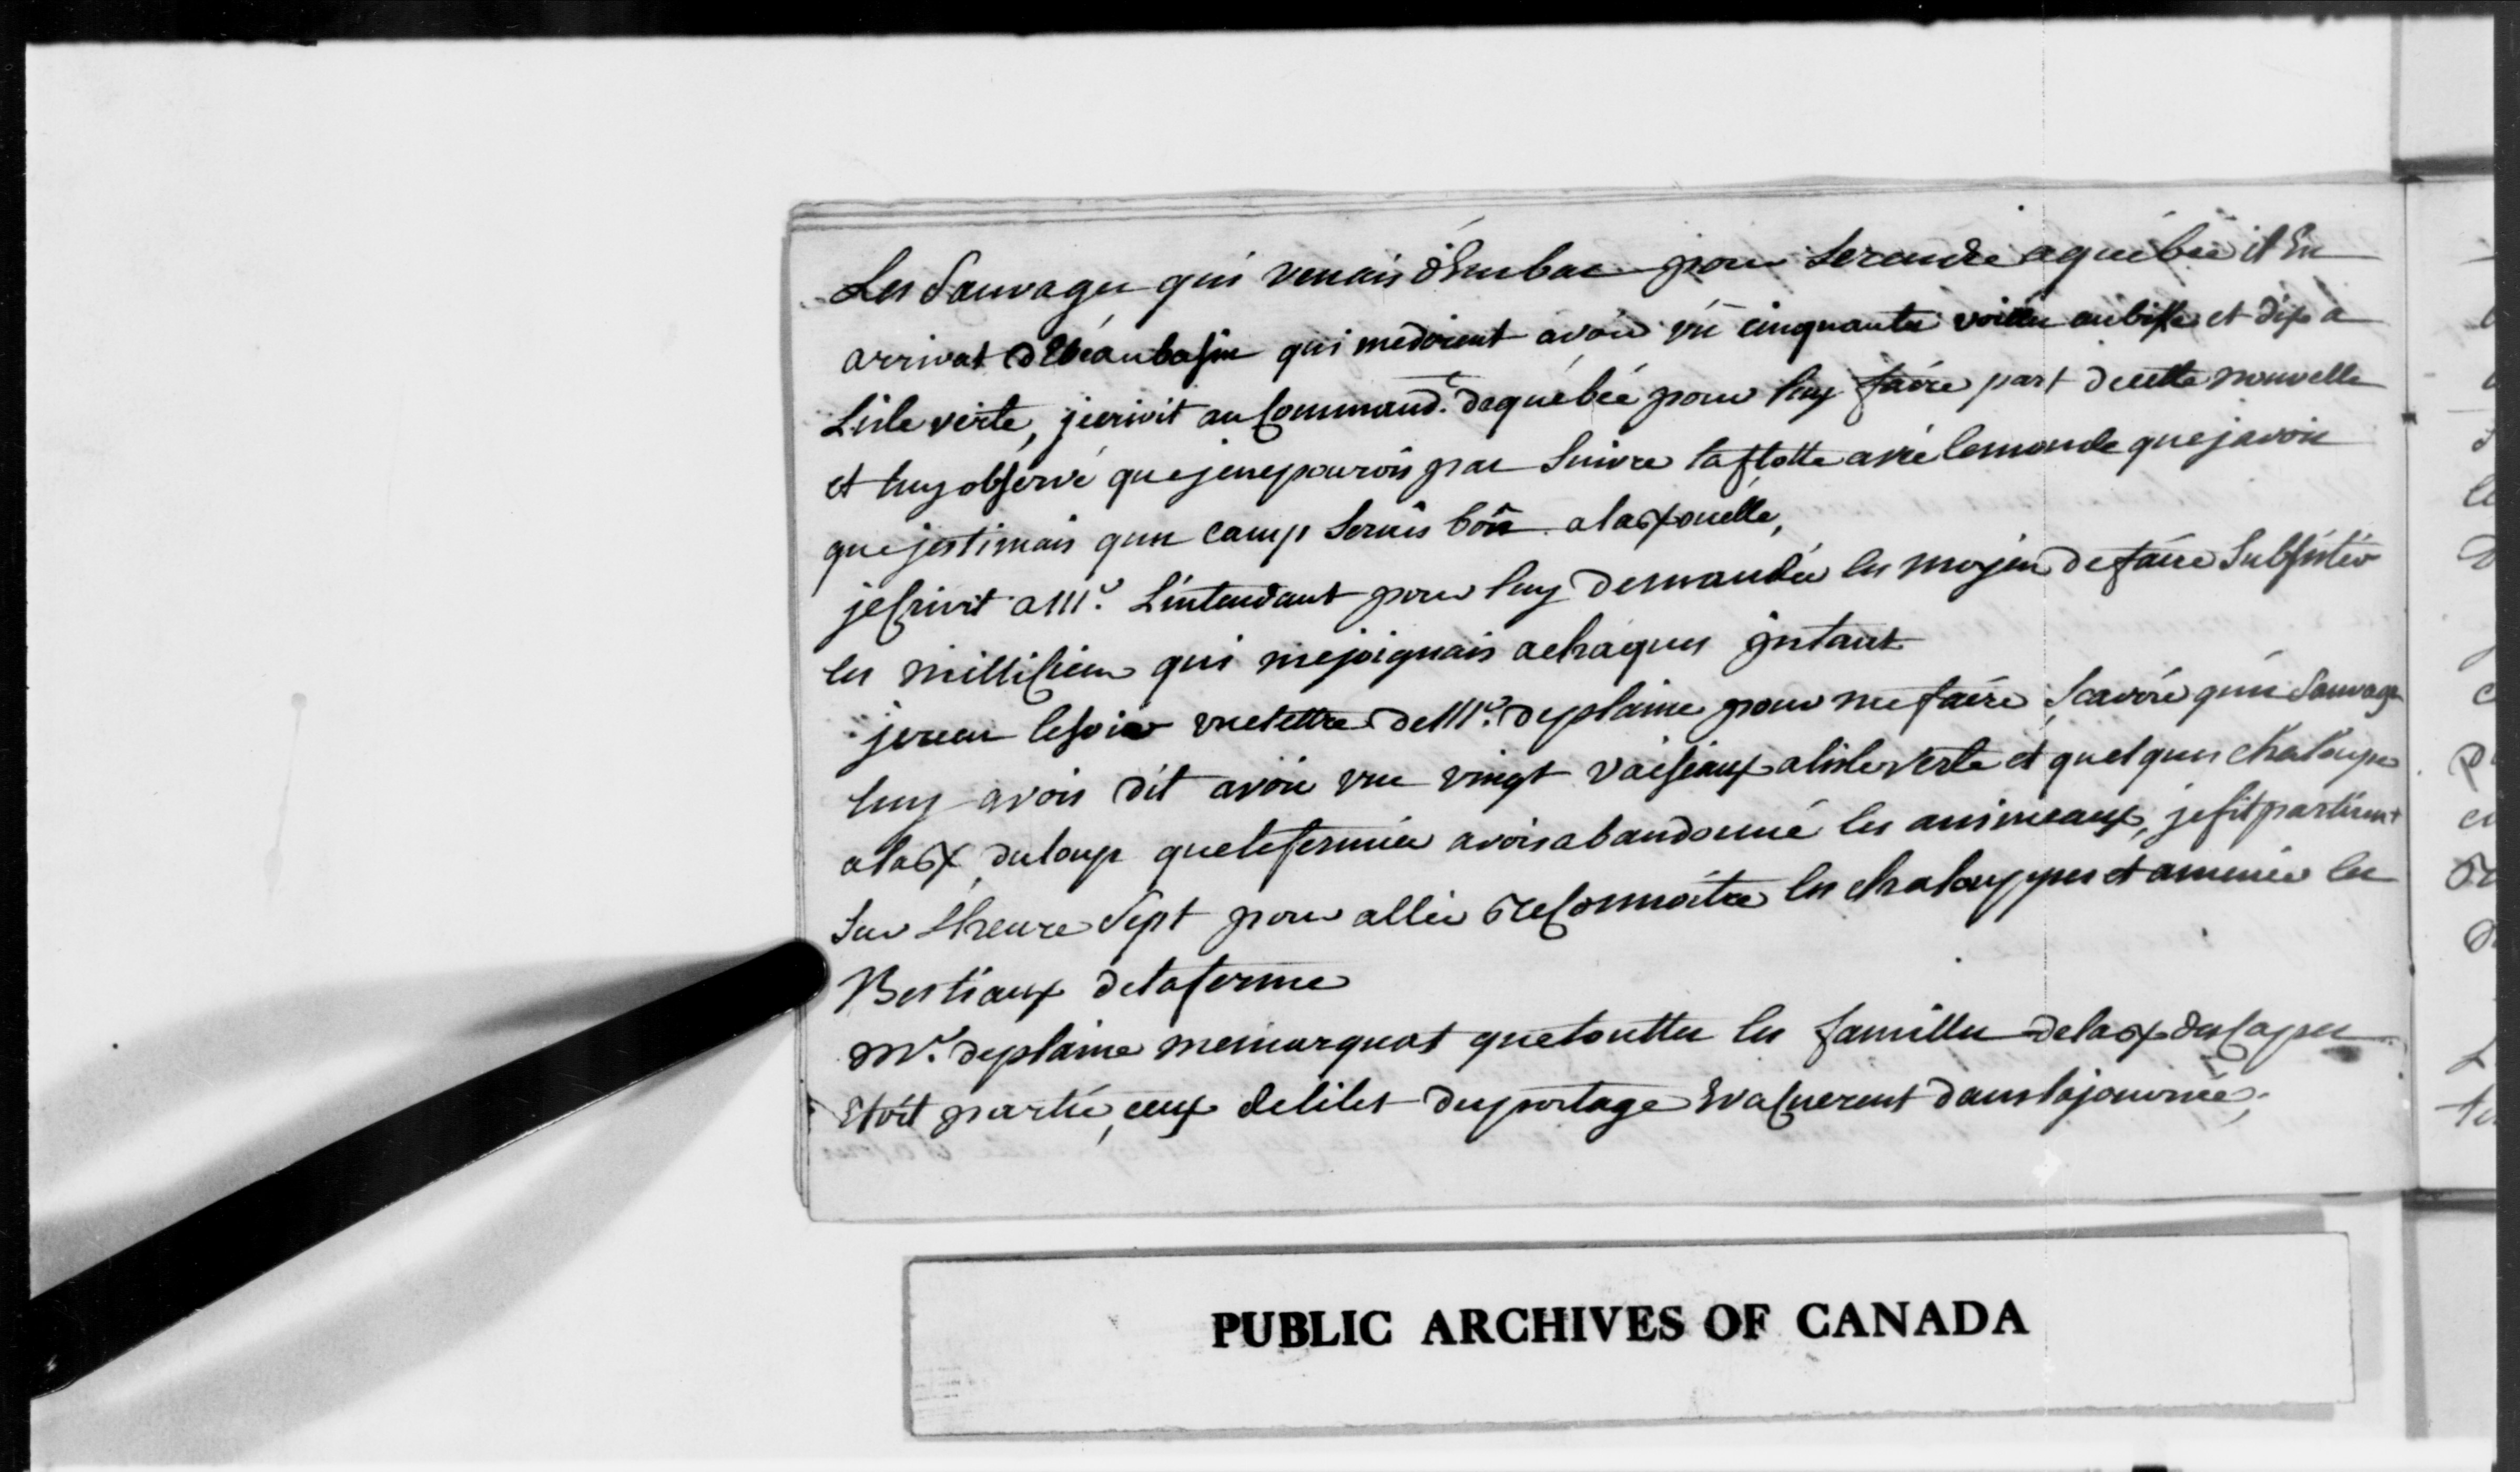 Les Sauvages qui venais d'Enbas pour Serendre aquébec il En
arrivat debéaubasin qui medirent avoir vû cinquantes voilles aubisse et dix a
Lisle verte, jecrivit au Command.t dequébéc pour luy faire part decette nouvelle
et luy observé quejenepourois pas Suivre laflotte avéc lemonde quejavois
quejestimais qun camp Serais bôn alaRx ouélle,
jeCrivit a Mr. Lintendant pour luy demandér les moyen defaire Subsistér
les milliCiens qui mejoignais achâques jnstant
jereçu lesoir unelettre deMr. deplaine pour mefaire Scavoir qun Sauvage
luy avois dit avoir vue vingt vaiseaux alisleverte et quelques chaloupes
alaRx duloup quelefermiér avoisabandonné les animeaux, jefitpartirent
Sur Lheure Sept pour allér ReConnoitre les chalouppes et amenér les
Bestiaux delaferme
Mr. deplaine memarquat quetouttes les familles delaRx desCapes
Etoit partie, ceux delilet duportage EvaCuerent dans lajournée,
PUBLIC ARCHIVES OF CANADA